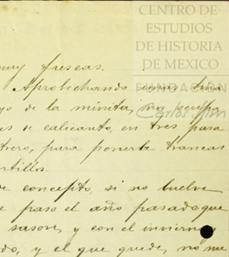 CENTRO DE
ESTUDIOS
DE HISTORIA
DE MEXICO
FUNDACIÓN
Carlos Slim
muy frescas.
Aprobechando
de la minita, nos ocupa
de calicanto, en tres para
para ponerle trancas
concepto, si no vuelve
paso el año pasado que
sason, y con el invierno
y el que quede, no me